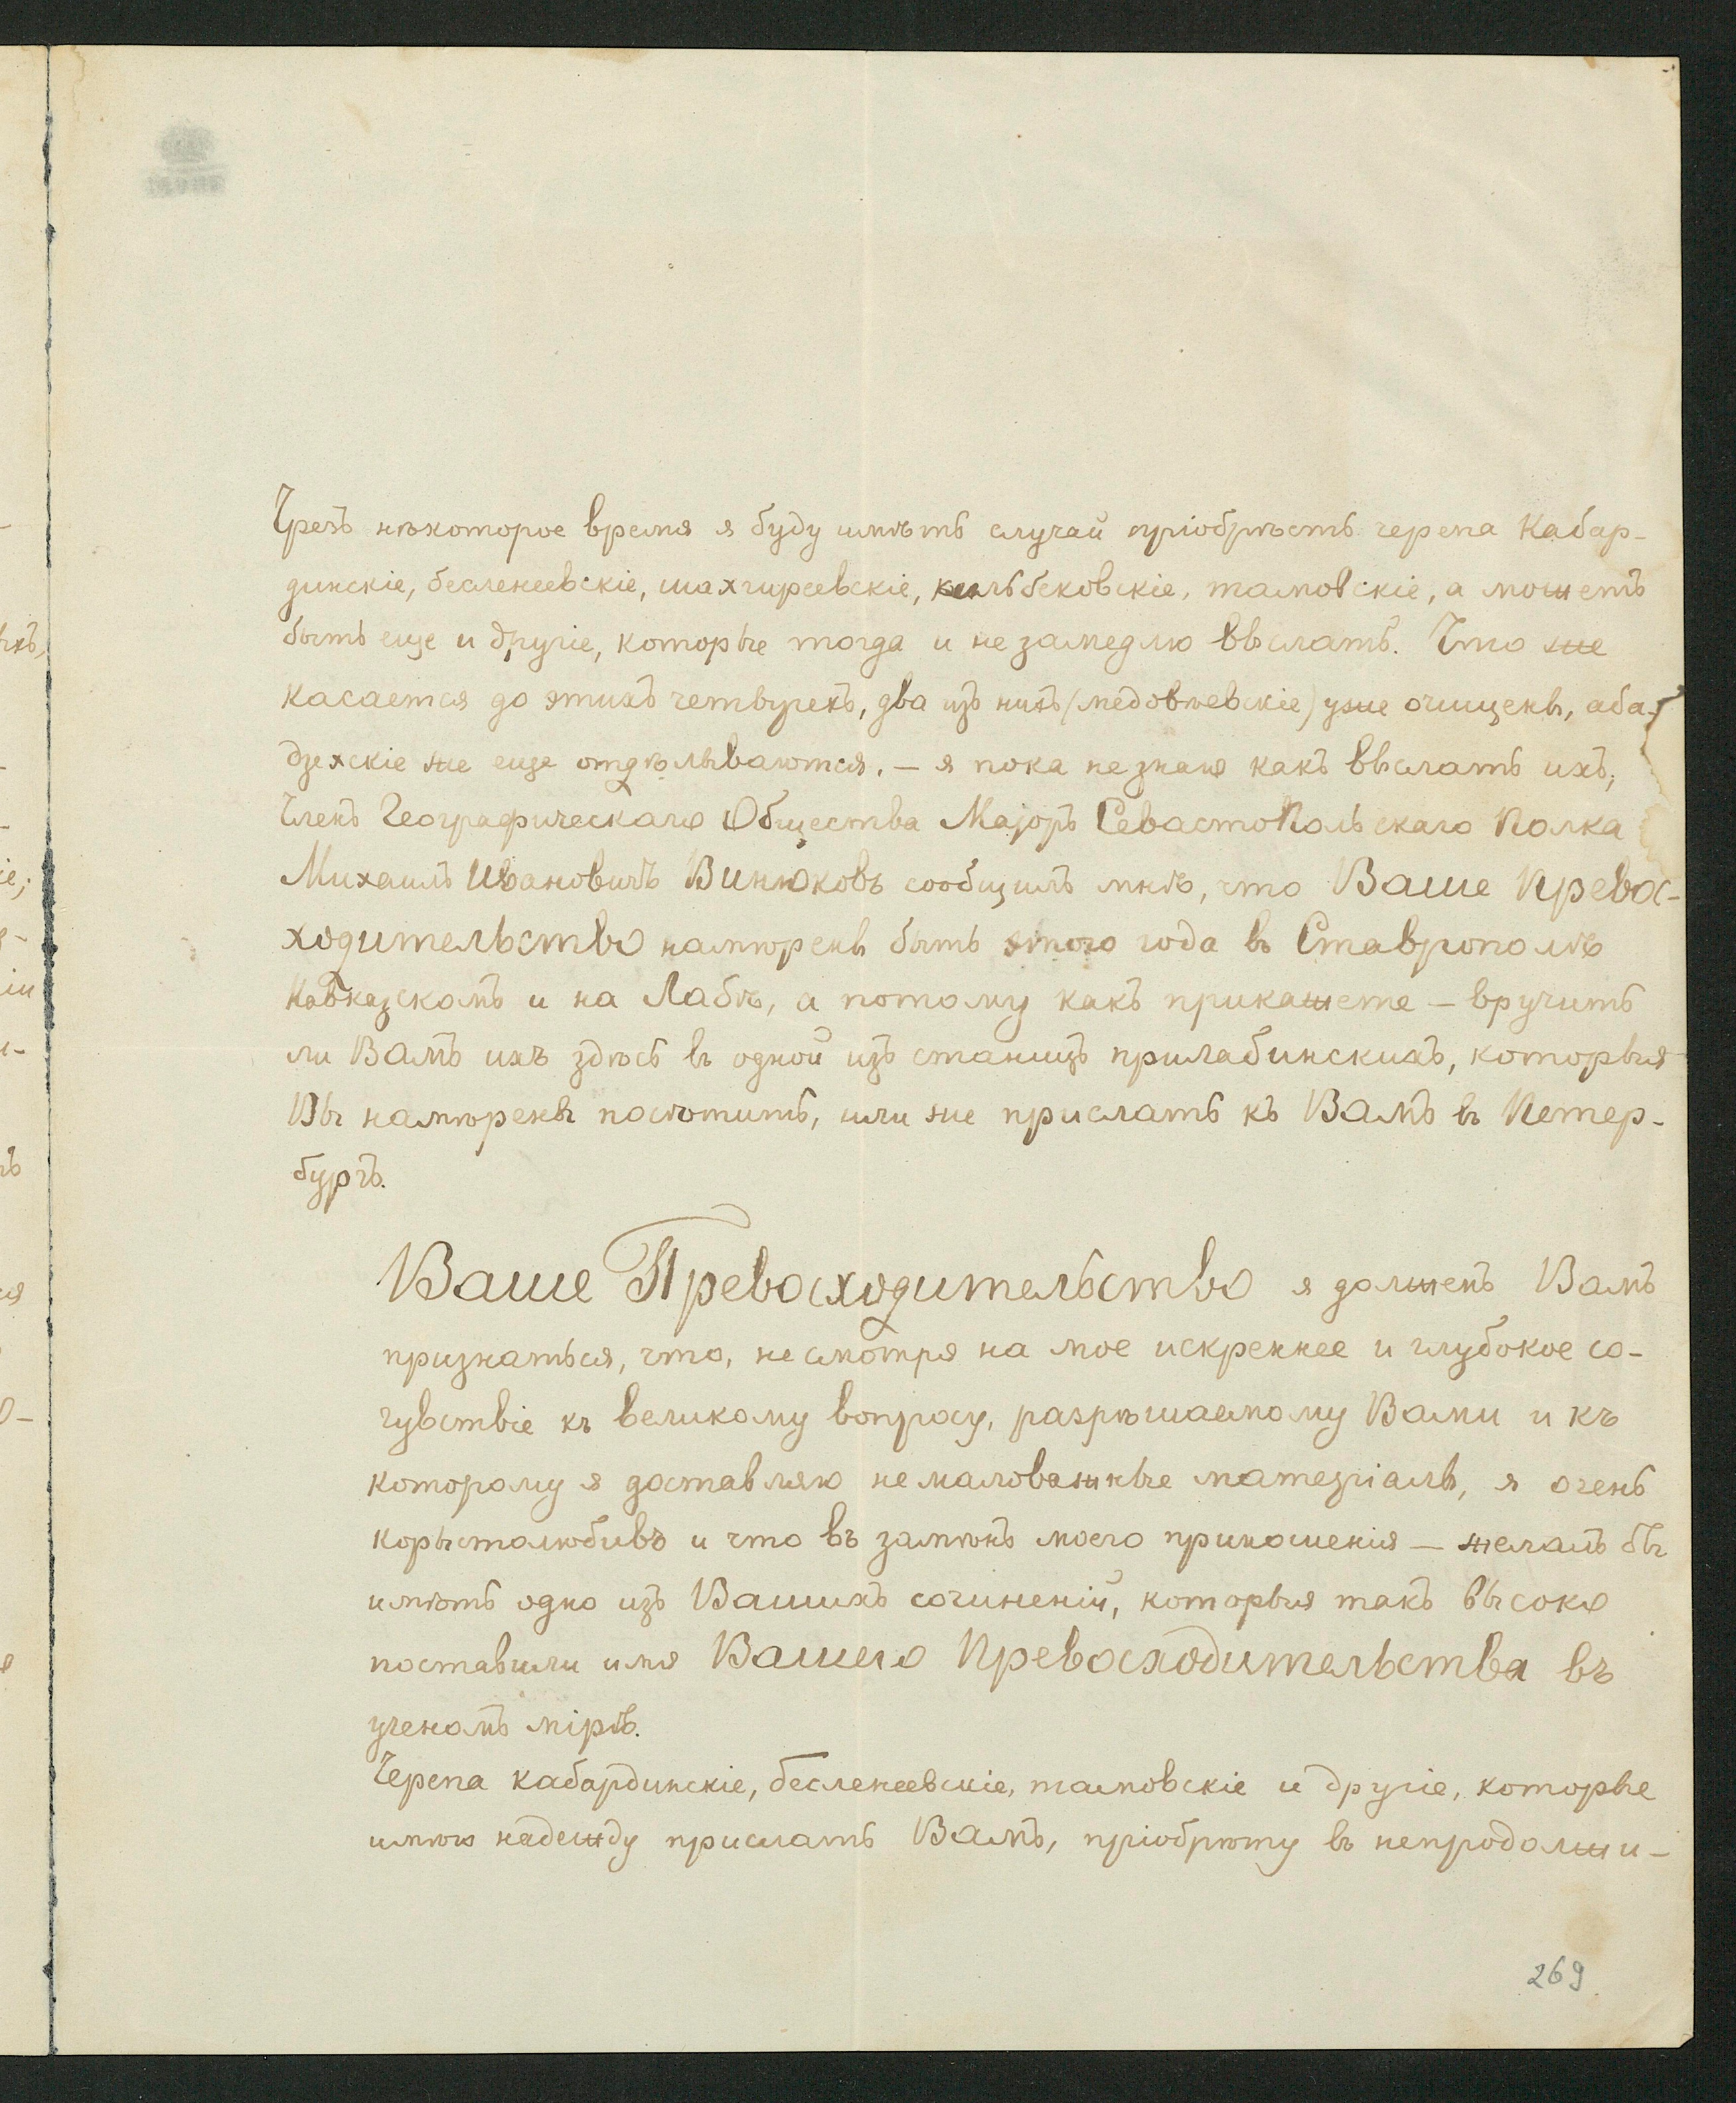 Чрезъ нѣкоторое время я буду имѣть случай пріобрѣсть черепа Кабар-
динскіе, бесленеевскіе, шахгиреевскіе, кизильбековскіе, тамовскіе, а можетъ
быть еще и другіе, которые тогда и не замедлю выслать. Что же
касается до этихъ четырехъ, два изъ нихъ (медовѣевскіе) уже очищены, аба-
дзехскіе же еще отдѣлываются, — я пока не знаю какъ выслать ихъ;
Членъ Географическаго Общества Маjоръ Севастопольскаго Полка
Михаилъ Ивановичъ Винюковъ сообщилъ мнѣ, что Ваше Превос-
ходительство намѣрены быть этого года въ Ставрополѣ
Кавказскомъ и на Лабѣ, а потому какъ прикажете — вручить
ли Вамъ ихъ здѣсь въ одной изъ станицъ прилабинскихъ, которыя
Вы намѣрены посѣтить, или же прислать къ Вамъ въ Петер-
бургъ.
Ваше Превосходительство я долженъ Вамъ
признаться, что, не смотря на мое искреннее и глубокое со-
чувствіе къ великому вопросу, разрѣшаемому Вами и къ
которому я доставляю немаловажные матеріалы, я очень
корыстолюбивъ и что въ замѣнъ моего приношенія — желалъ бы
имѣть одно изъ Вашихъ сочиненій, которыя такъ высоко
поставили имя Вашего Превосходительства въ
ученомъ мірѣ.
Черепа кабардинскіе, бесленеевскіе, тамовскіе и другіе, которые
имѣю надежду прислать Вамъ, пріобрѣту въ непродолжи-
269